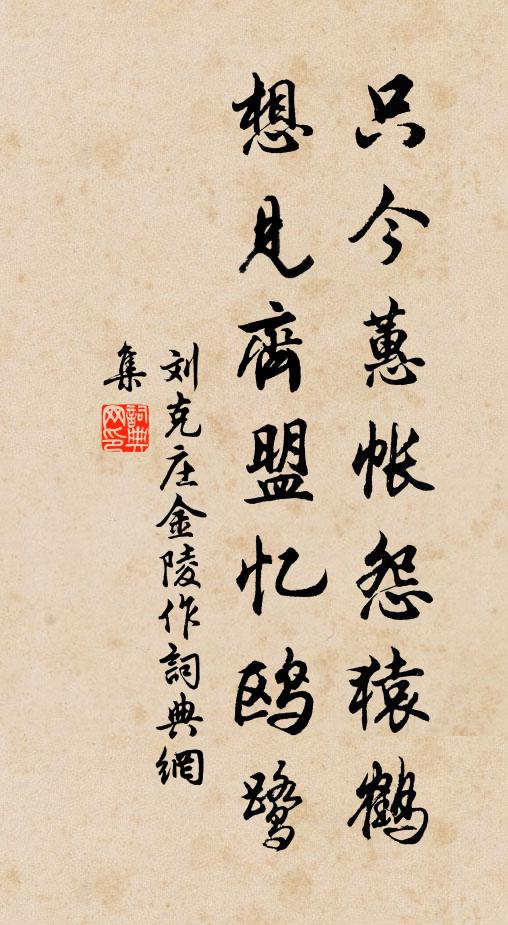 只今蕙帐怨猿鹤
想见齊盟忆鸥鹭
刘克庄金陵作詞典網
集
詞典网印